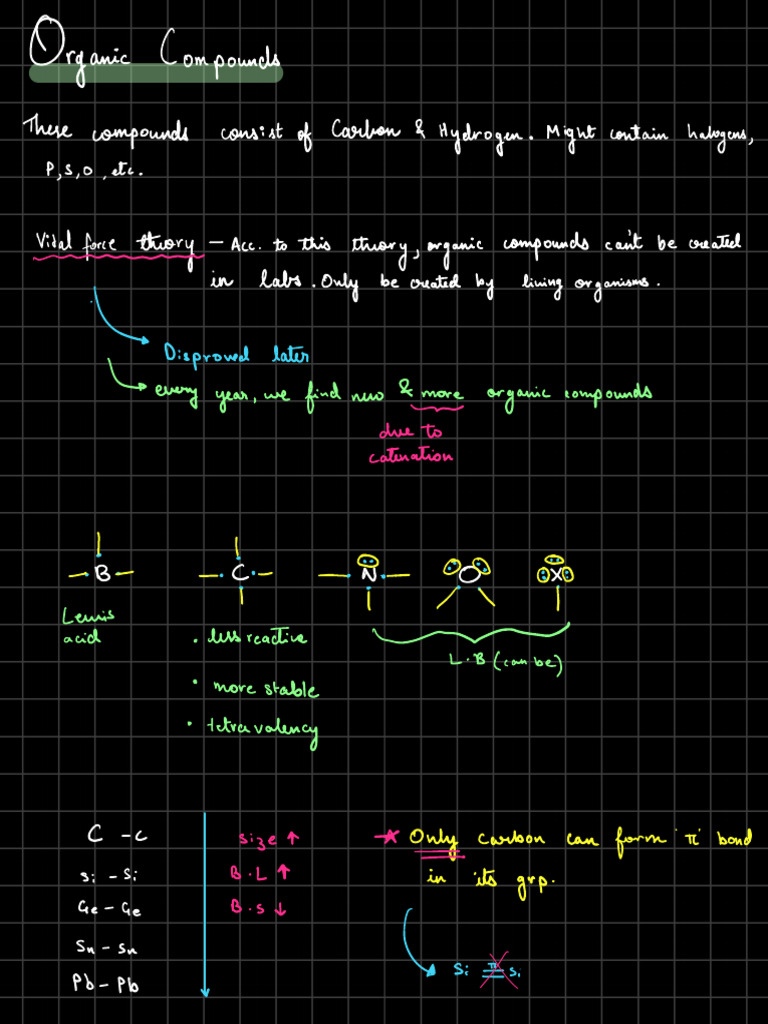 Organic Compounds
These compounds consist of Carbon & Hydrogen. Might contain halogens,
P, S, O, etc.
Vidal force theory – Acc. to this theory, organic compounds can't be created
in labs. Only be created by living organisms.
Disproved later
every year, we find new & more organic compounds
due to
catenation
B C N O X
Lewis
acid
• less reactive
• more stable
• tetravalency
L.B (can be)
C – C
Si – Si
Ge – Ge
Sn – Sn
Pb – Pb
size ↑
B.L ↑
B.S ↓
* Only carbon can form 'π' bond
in its grp.
Si π Si